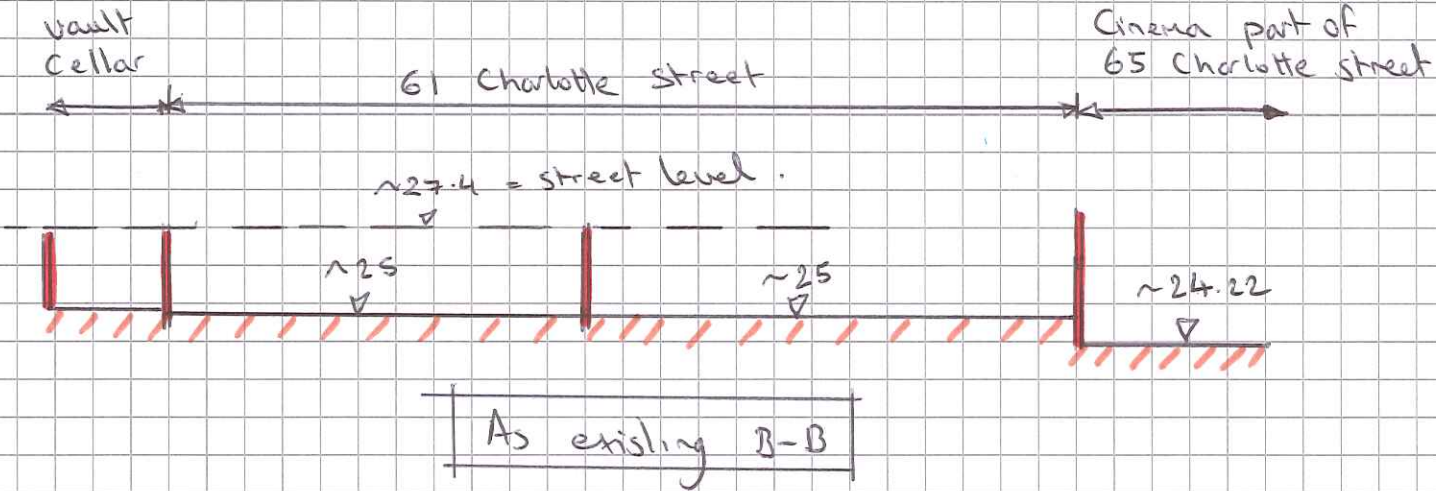 vault
Cellar
61 Charlotte street
Cinema part of
65 Charlotte street
~27.4 = street level.
~25
~25
~24.22
As existing B-B